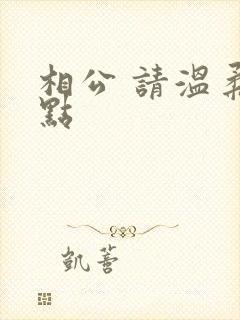 相公 請溫柔
點
凱薔